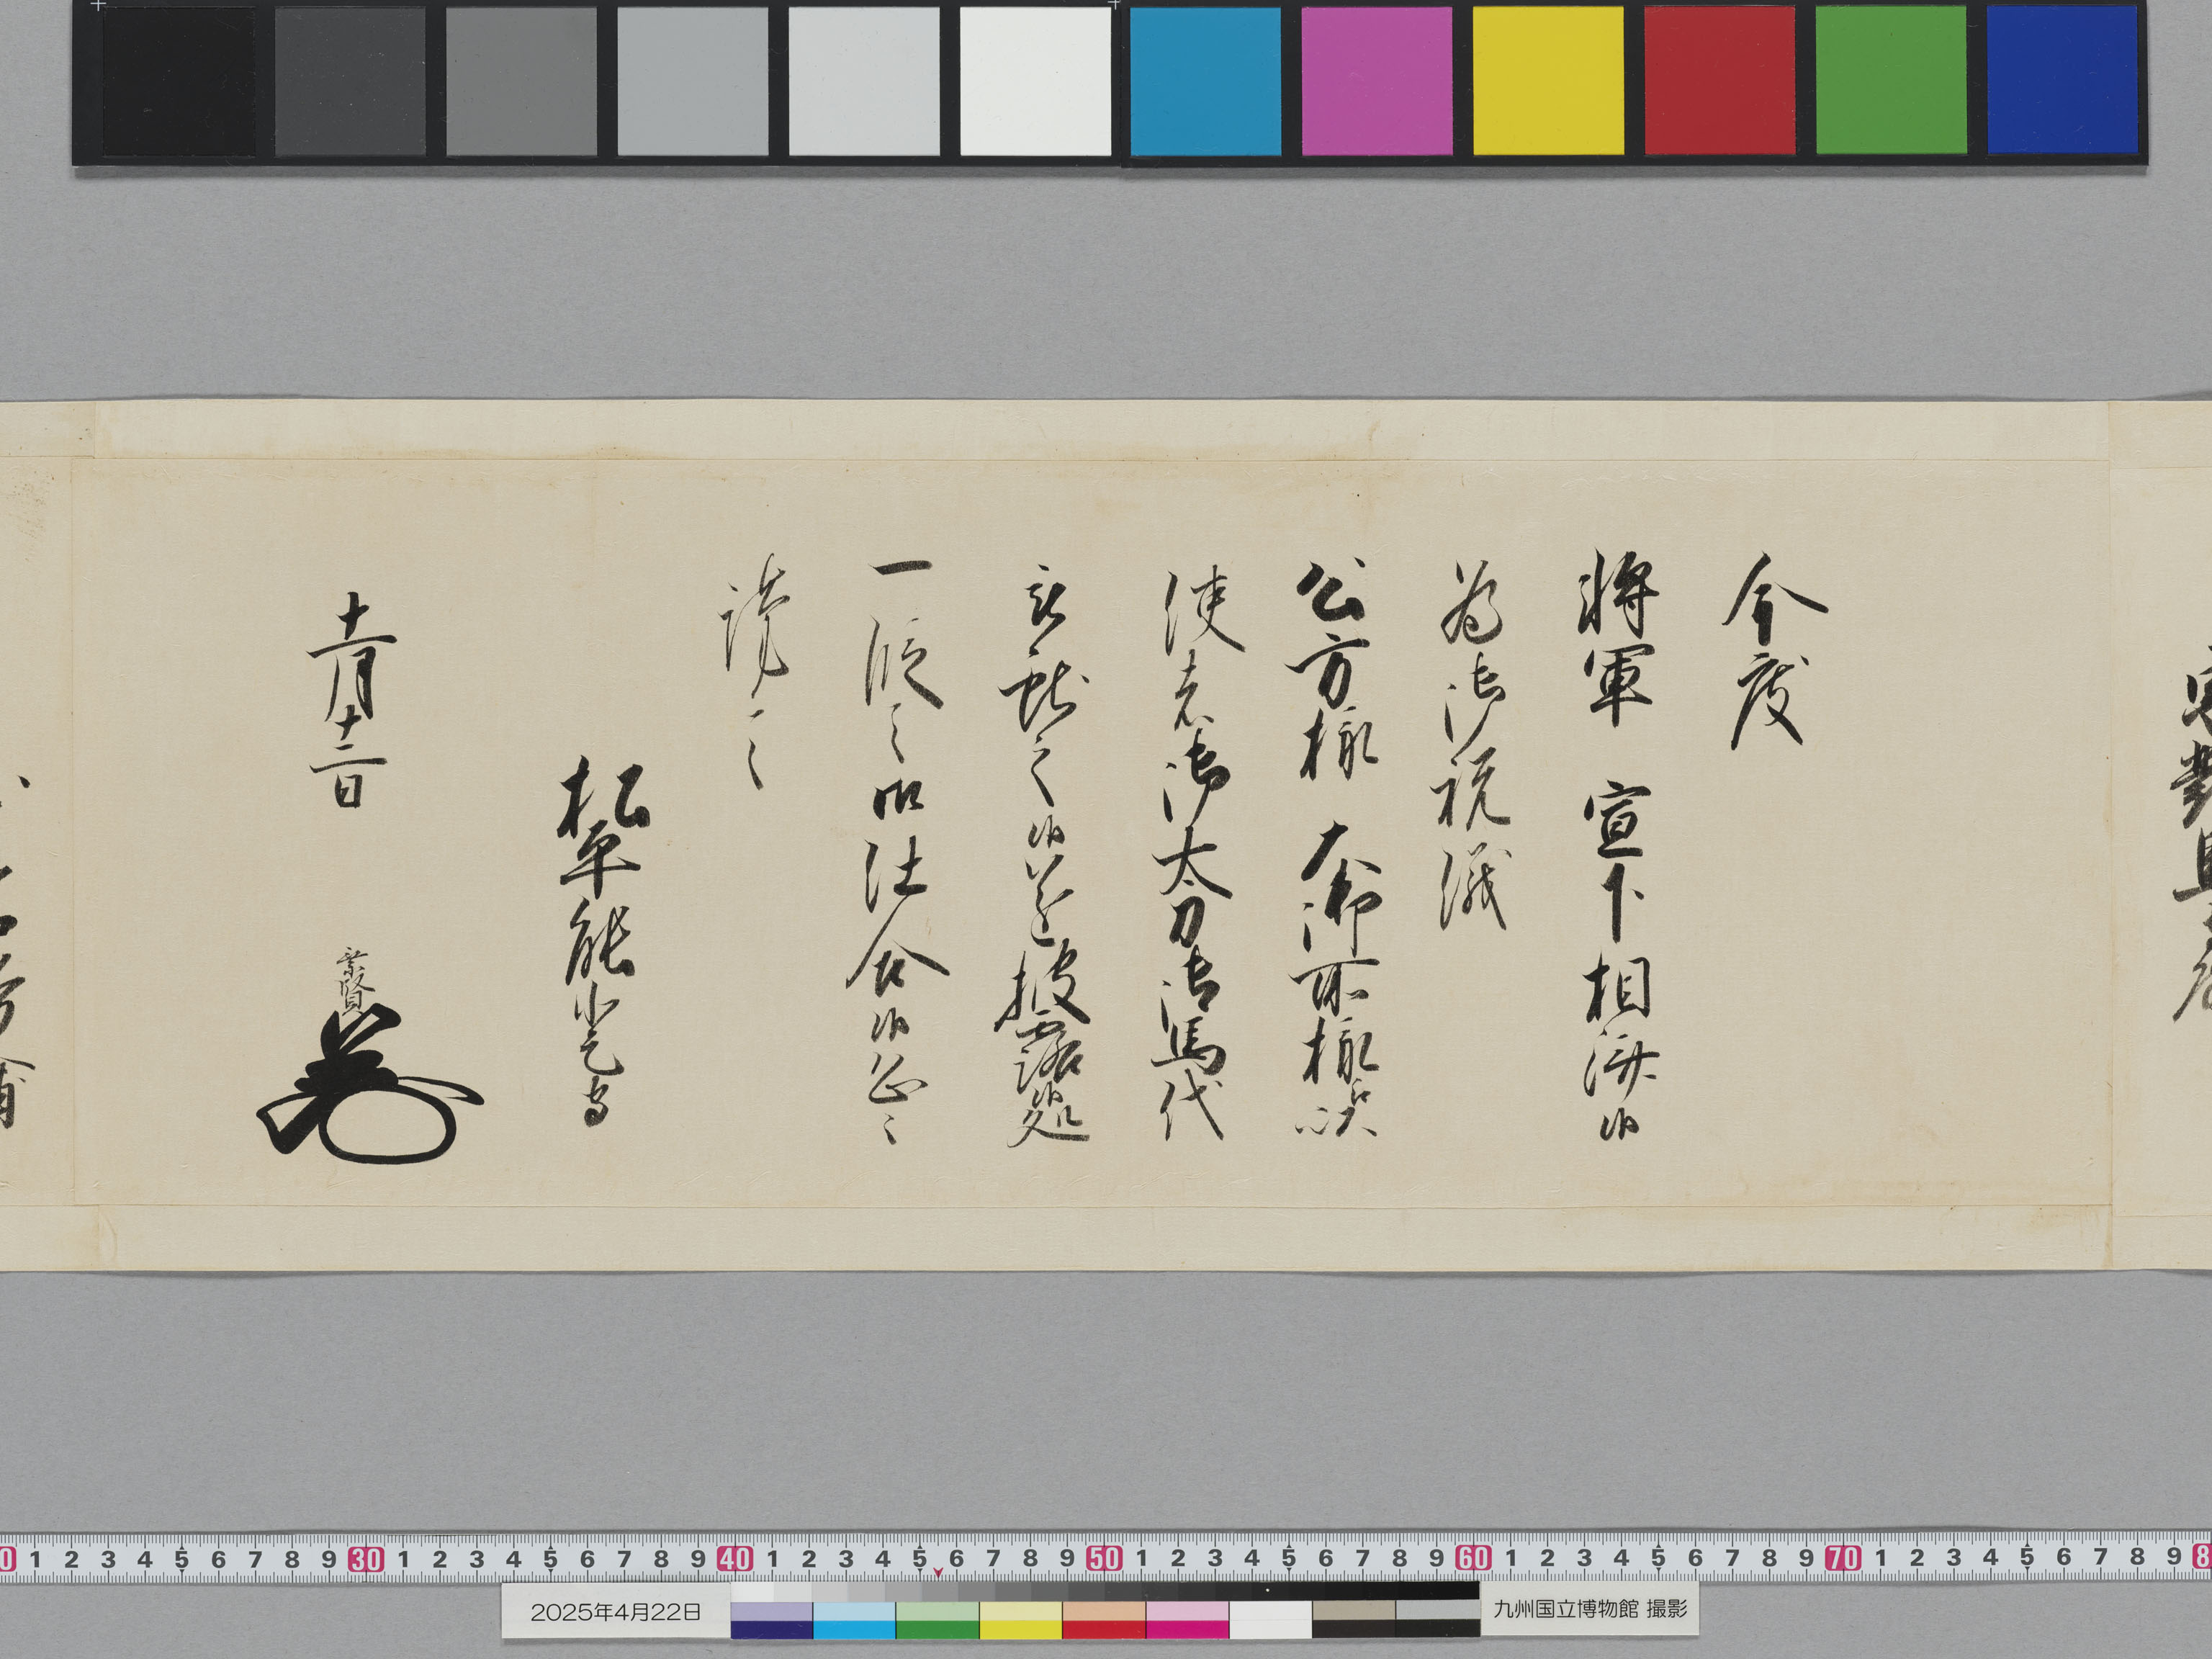 今度
将軍 宣下相済候
為御祝儀
公方様 大御所様江以
使者御太刀御馬代
被献之候遂披露処
一段之御仕合候恐々
謹言
松平能登守
十一月十二日
乗賢
0 1 2 3 4 5 6 7 8 9 30 1 2 3 4 5 6 7 8 9 40 1 2 3 4 5 6 7 8 9 50 1 2 3 4 5 6 7 8 9 60 1 2 3 4 5 6 7 8 9 70 1 2 3 4 5 6 7 8 9 8
2025年4月22日
九州国立博物館 撮影